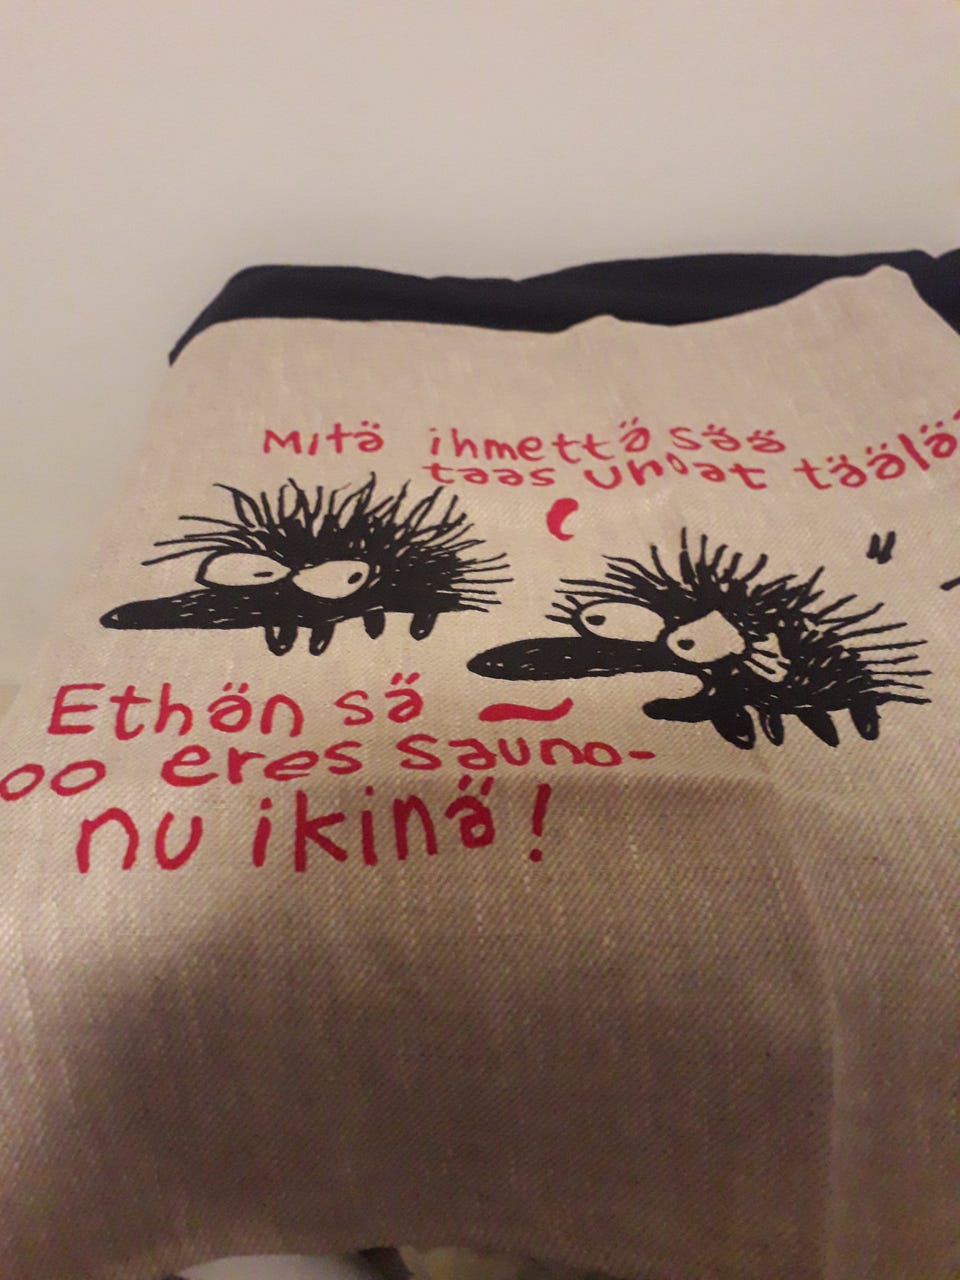 Mitä ihmettä sää
taas unoat täälä
Ethän sä
oo eres sauno-
nu ikinä!